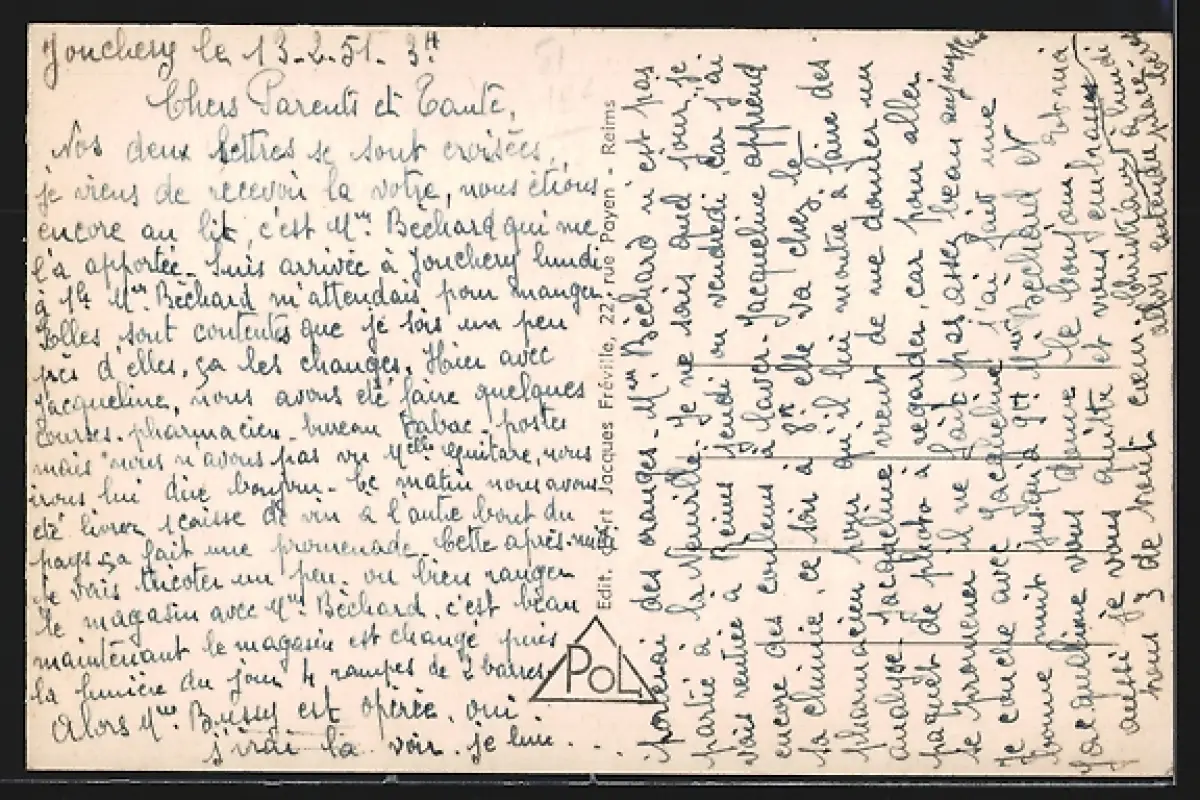 Jonchery le 13-2-51. 3H
Chers Parents et Tante,
Nos deux lettres se sont croisées..
je viens de recevoir la votre, nous étions
encore au lit, c'est Mme Bèchard qui me
l'a apportée. Suis arrivée à Jonchery lundi
à 1h Mme Bèchard m'attendais pour manger.
Elles sont contentes que je sois un peu
près d'elles, ça les changes. Hier avec
Jacqueline, nous avons été faire quelques
courses. pharmacien - bureau tabac - postes
mais nous n'avons pas vu Melle, nous
irons lui dire bonjour - Ce matin nous avons
été livrer 1 caisse de vin à l'autre bout du
pays ça fait une promenade. Cette après-midi
je vais tricoter un peu. ou bien ranger
le magasin avec Mme Bèchard. c'est beau
maintenant le magasin est changé puis
la lumière du jour 4 rampes de 2 barres
Alors Mme Bussy est opérée. oui
j'irai la voir. je lui . . .
porterai des oranges. Mme Bèchard n'est pas
partie à la Neuville. Je ne sais quel jour je
vais rentrée à Reims jeudi ou vendredi car j'ai
encore des couleurs à laver. Jacqueline apprend
la chimie, ce soir à 8H elle va chez le
pharmacien pour qu'il lui montre à faire des
analyse. Jacqueline vient de me donner un
paquet de photo à regarder, car pour aller
se promener il ne fait pas assez beau aujourd'hui
Je couche avec Jacqueline j'ai fait une
bonne nuit jusqu'à 9H. Mme Bèchard et
Jacqueline vous donne le bonjour, Et moi
aussi je vous quitte et vous embrasse
tous 3 de tout coeur. Christiane à lundi
alors entendu place
Edit. d'Art Jacques Fréville, 22, rue Payen - Reims
PoL